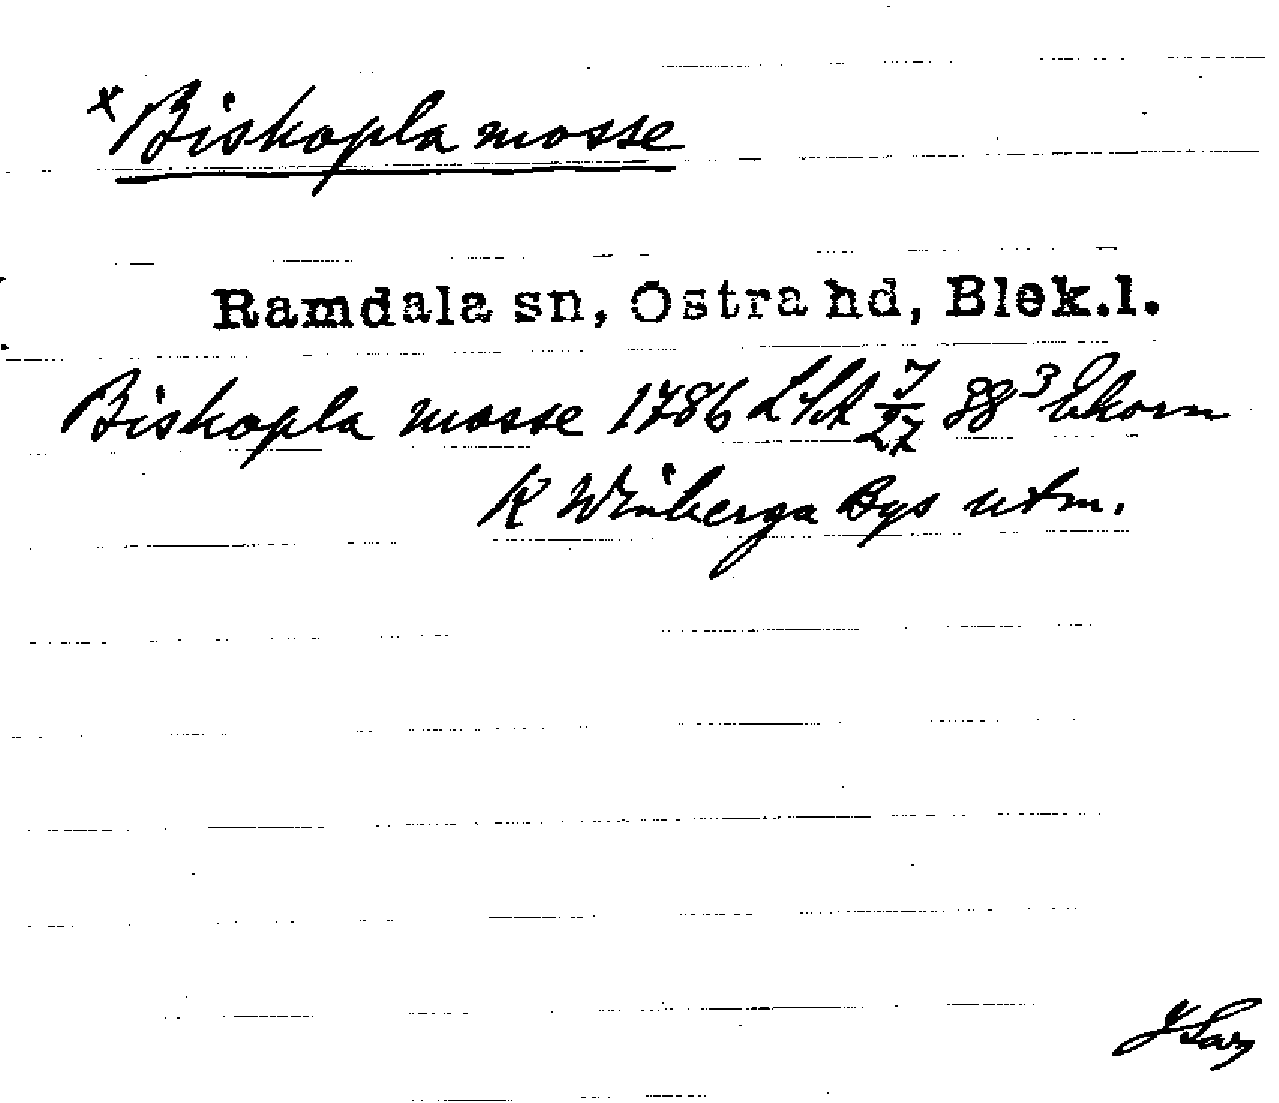 x Biskopla mosse
Ramdala sn, Östra hd, Blek.l.
Biskopla mosse 1786 LSA 7/27 88³ Ekorn
K Winberga Bys utm.